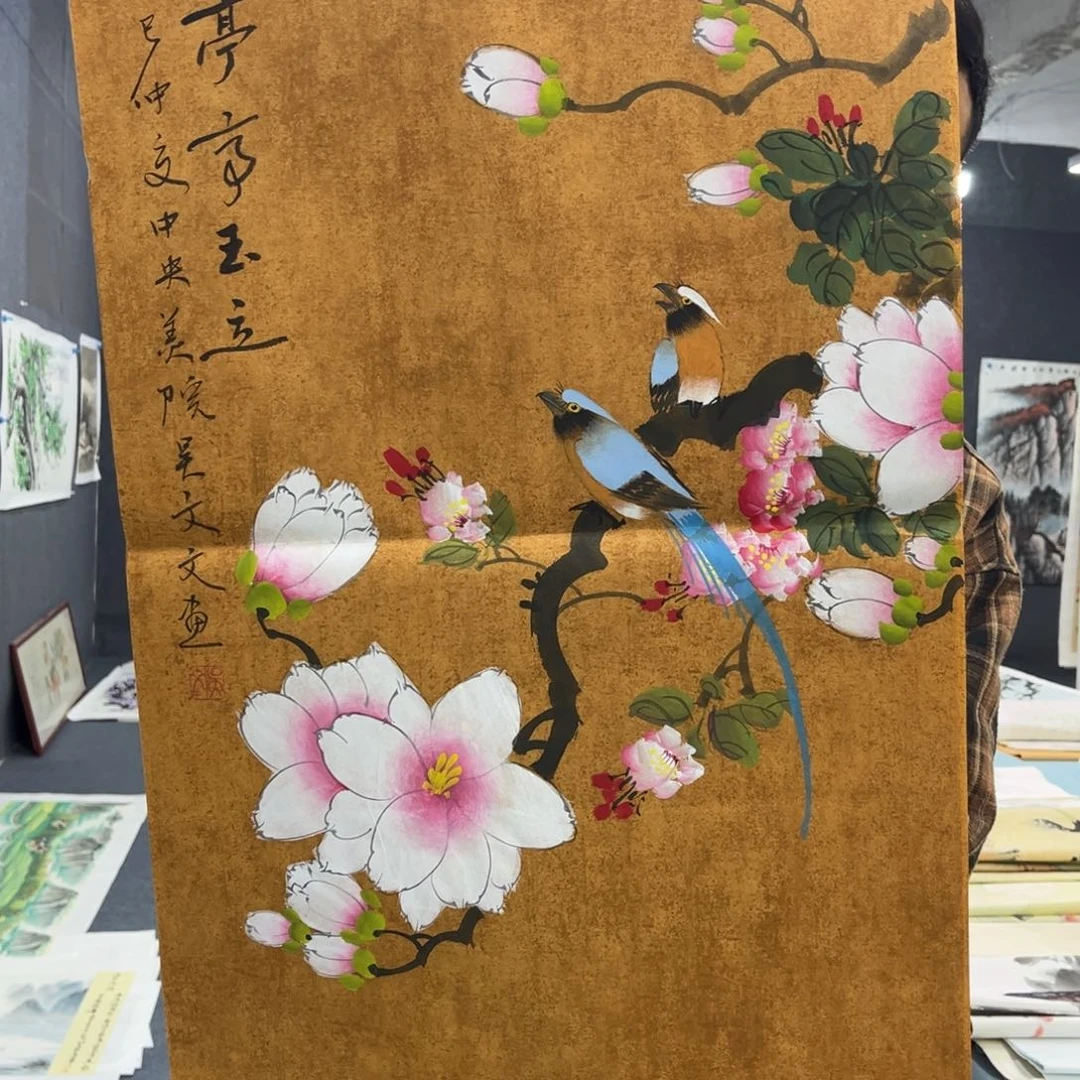 亭亭玉立
巳仲夏中央美院吴文文画